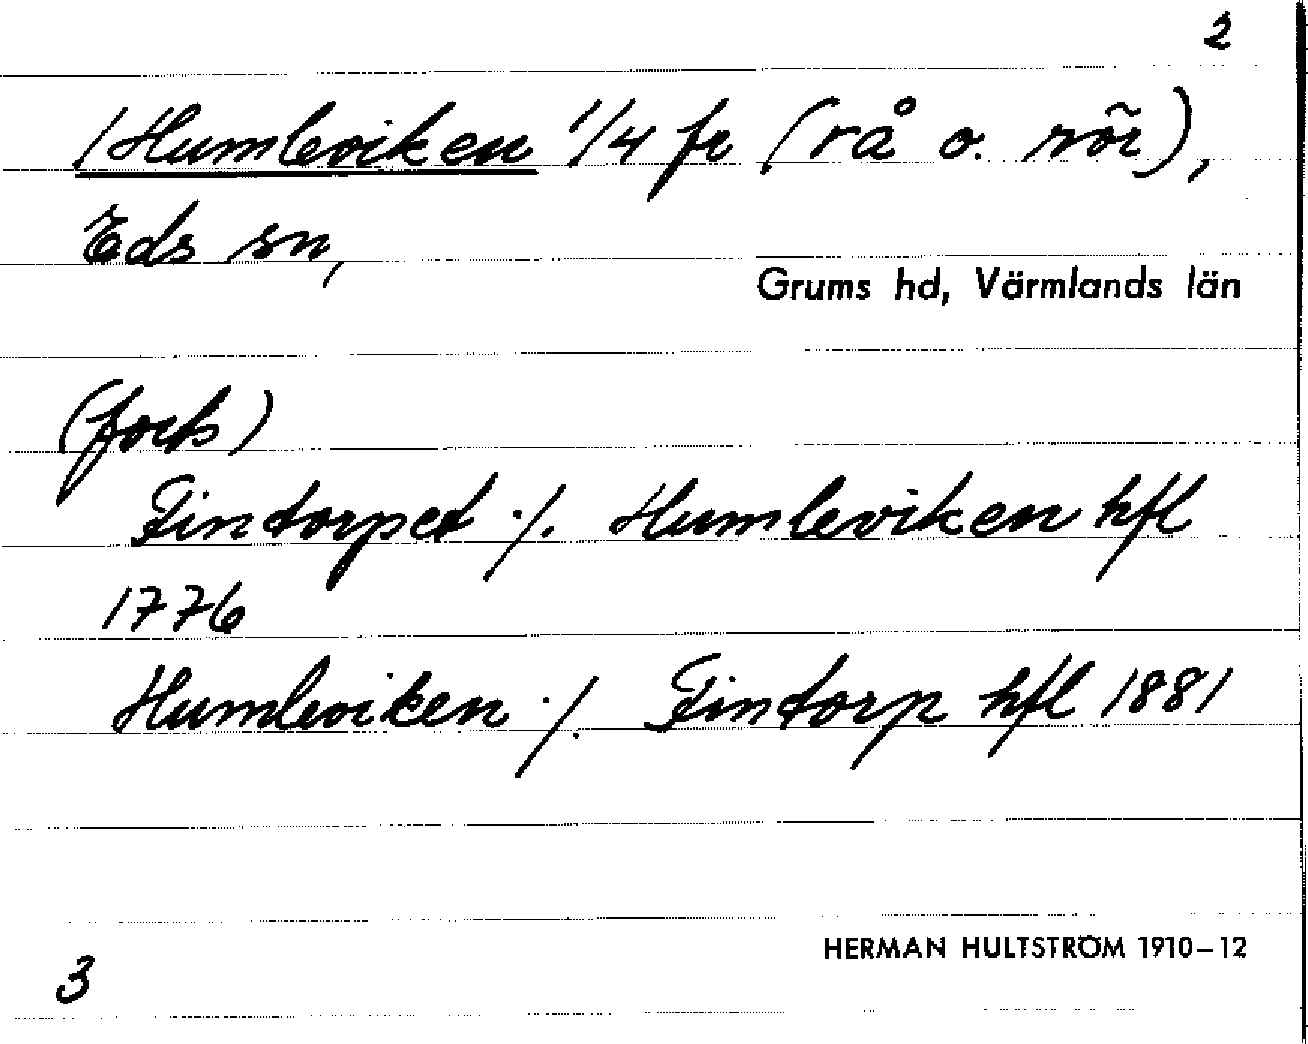 2
/Humleviken 1/4 fr (rå o. rör),
Eds sn,
Grums hd, Värmlands län
(forts)
Fintorpet ./. Humleviken hfl
1776
Humleviken ./. Fintorp hfl 1881
HERMAN HULTSTRÖM 1910–12
3